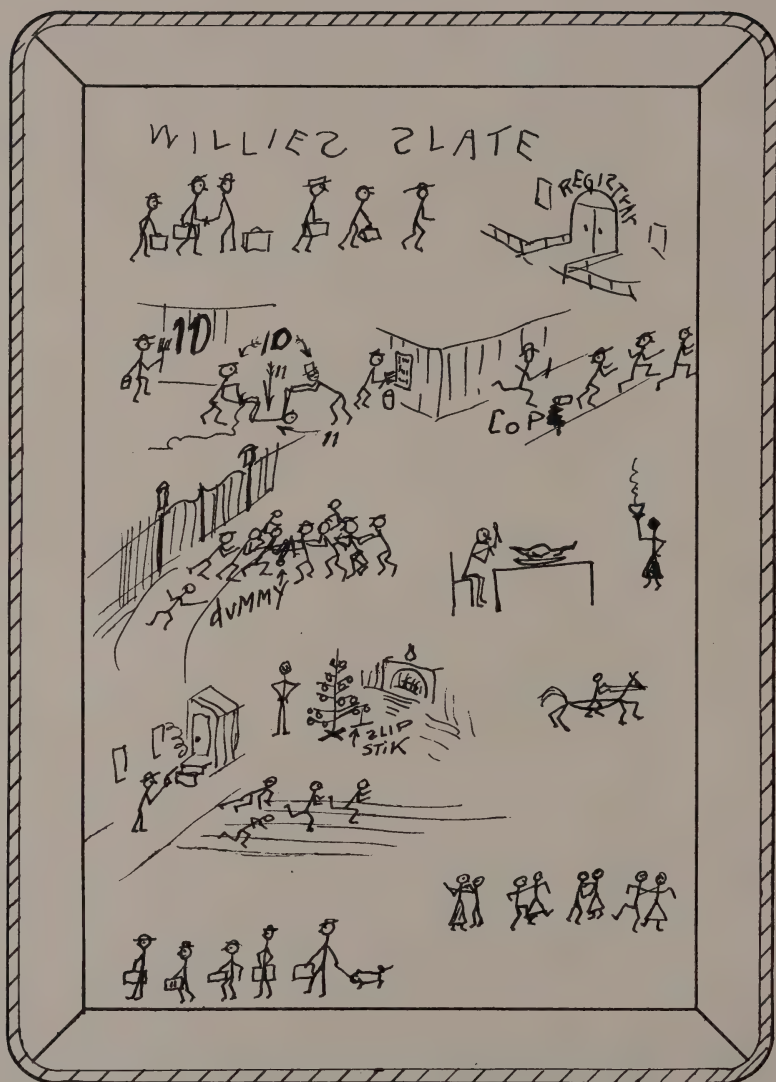 WILLIES SLATE
REGISTRAR
1D
1D
11
11
COP
dUMMY
SLIP
STiK